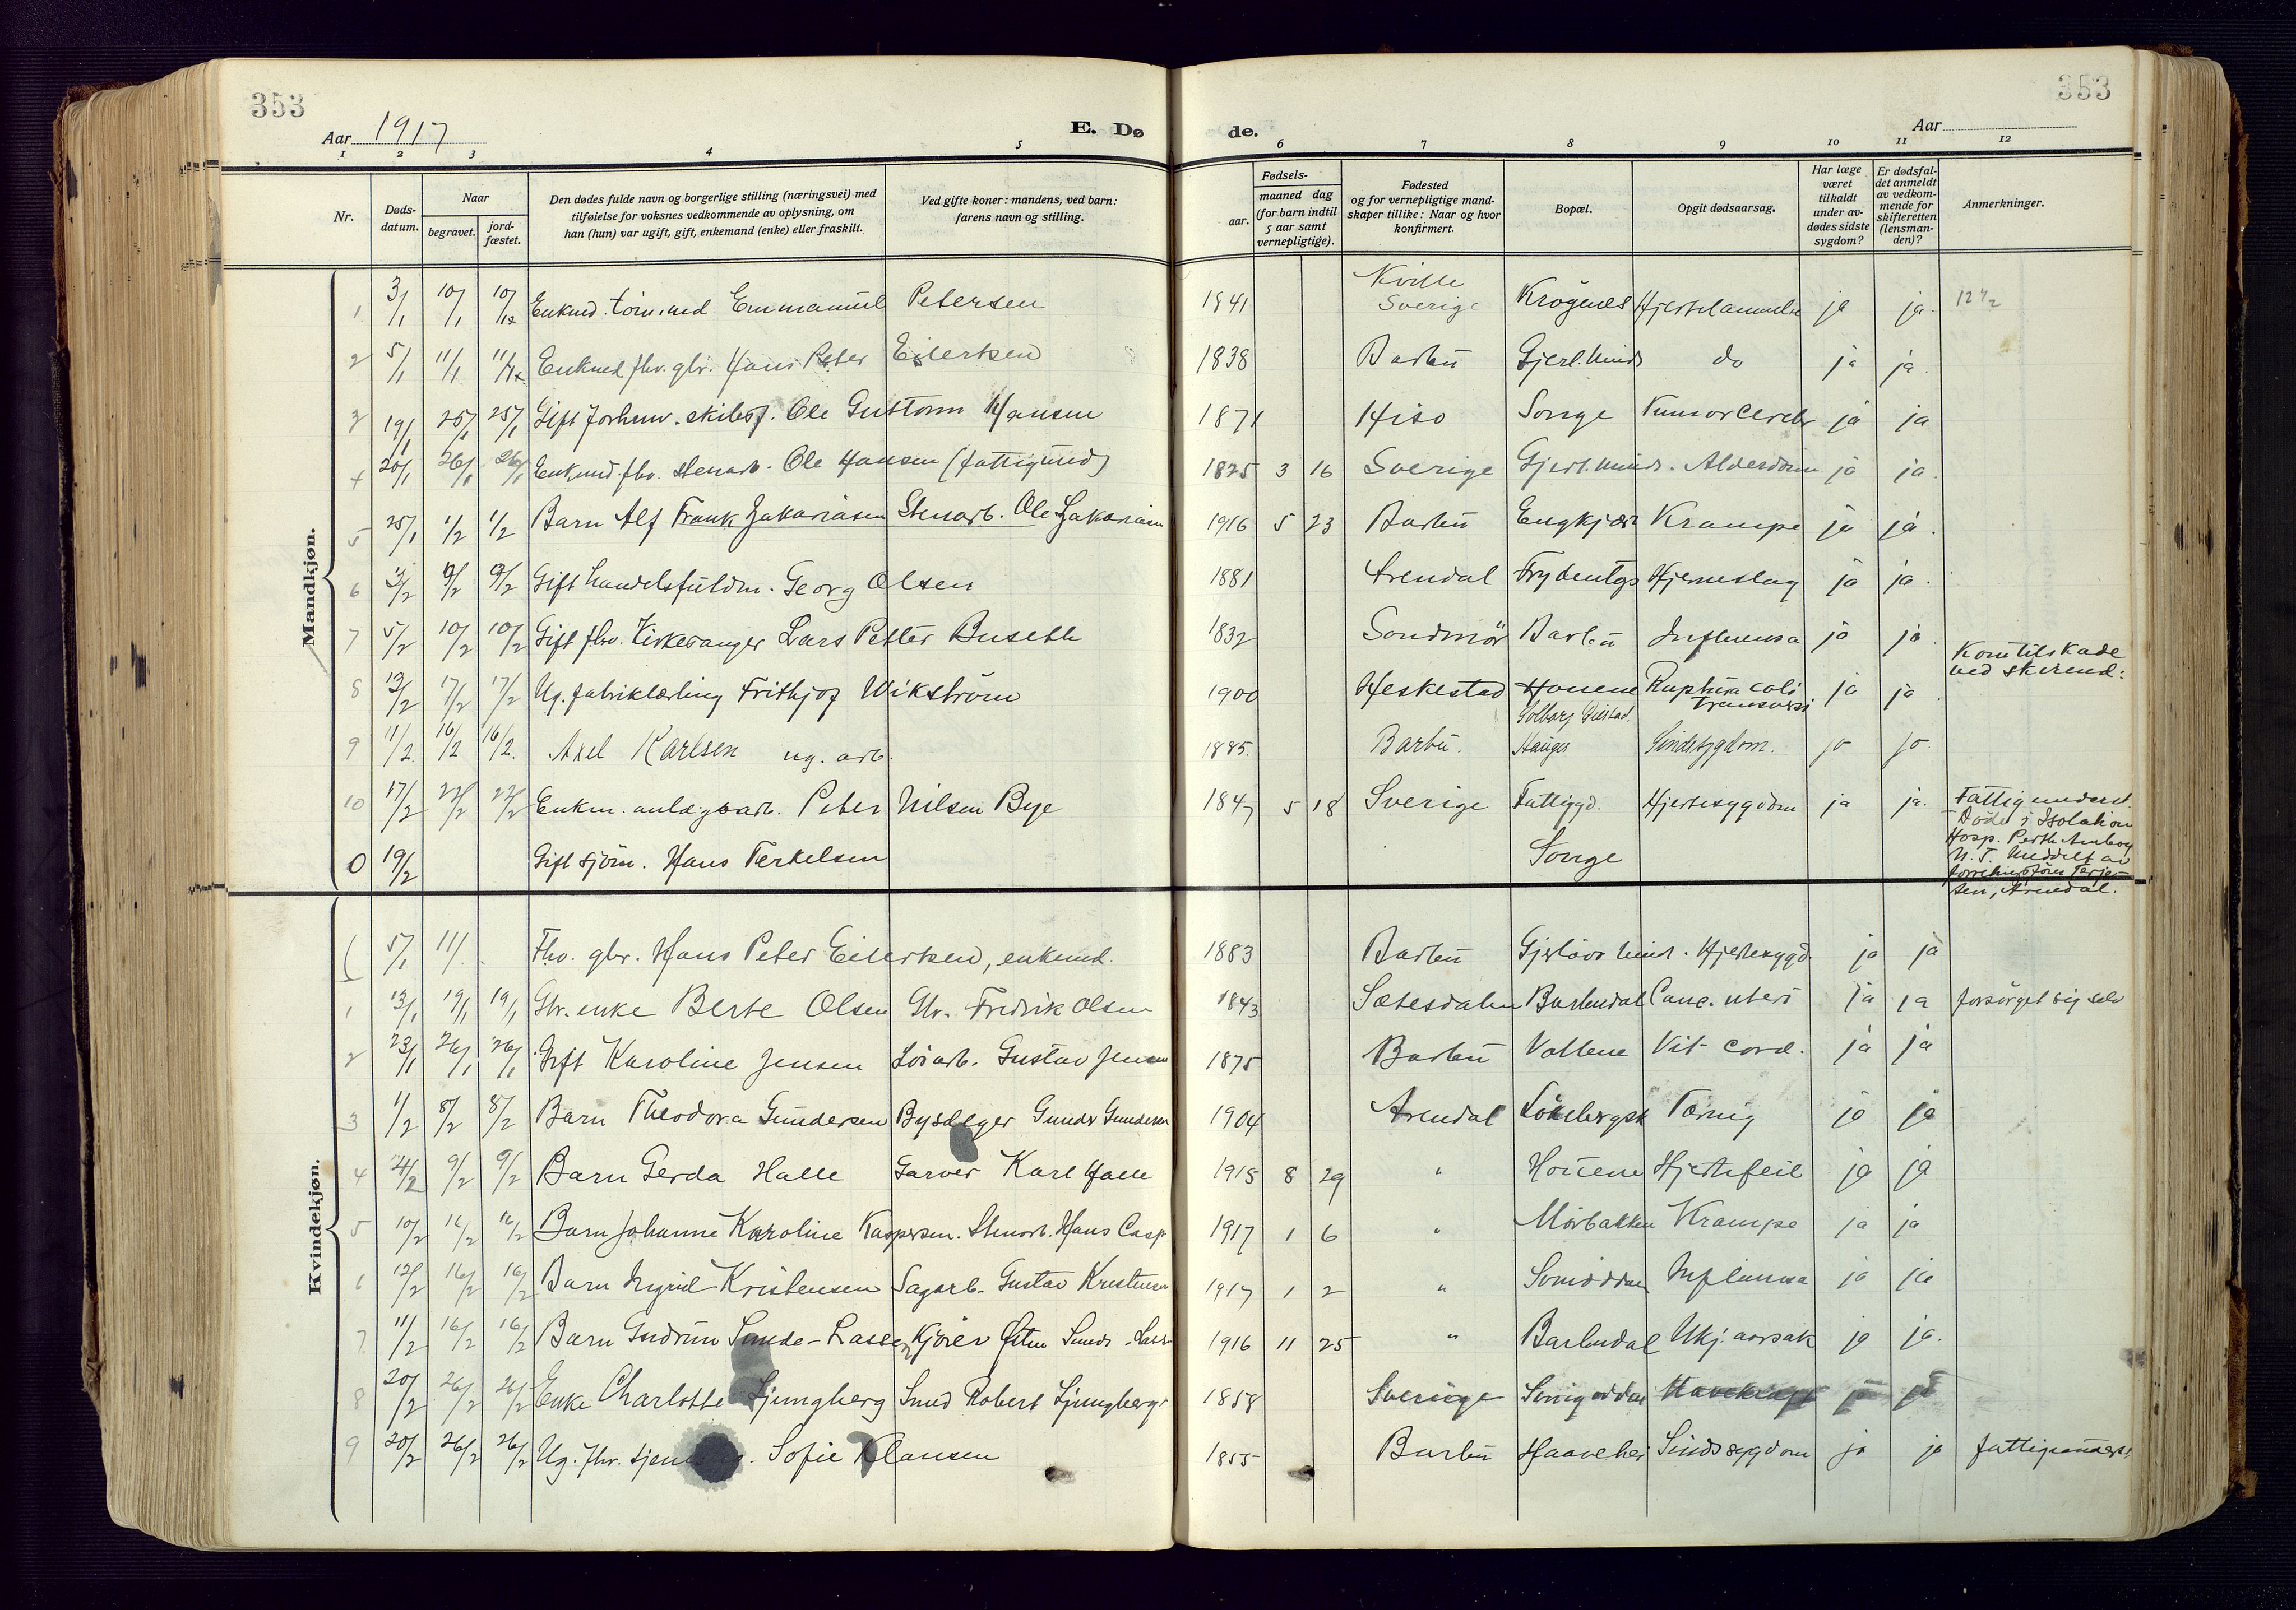 353
353
Aar 1917
E. Dø
de.
Aar
1 2 3 4 5 6 7 8 9 10 11 12
Nr.
Døds-
datum.
Naar
begravet.
jord-
fæstet.
Den dødes fulde navn og borgerlige stilling (næringsvei) med
tilføielse for voksnes vedkommende av oplysning, om
han (hun) var ugift, gift, enkemand (enke) eller fraskilt.
Ved gifte koner: mandens, ved barn:
farens navn og stilling.
Fødsels-
aar.
maaned dag
(for barn indtil
5 aar samt
vernepligtige).
Fødested
og for vernepligtige mand-
skaper tillike: Naar og hvor
konfirmert.
Bopæl.
Opgit dødsaarsag.
Har læge
været
tilkaldt
under av-
dødes sidste
sygdom?
Er dødsfal-
det anmeldt
av vedkom-
mende for
skifteretten
(lensman-
den)?
Anmerkninger.
Mandkjøn.
1 3/1 10/1 10/1 Enkmd. tømmd Emmanuel Petersen 1841 Kville Sverige Krøgenes Hjertelammelse ja ja.
2 5/1 11/1 11/1 Enkmd fhv. gbr. Hans Peter Eilertsen 1838 Barbu Gjerl. minde do ja ja.
3 19/1 25/1 25/1 Gift forhenv. skibsf. Ole Guttorm Hansen 1871 Hisø Songe Tumor Cerebr ja ja
4 20/1 26/1 26/1 Enkmd. fhv. stenarb. Ole Hansen (fattigund) 1825 3 16 Sverige Gjerl. minde. Alderdom ja ja.
5 25/1 1/2 1/2 Barn Alf Frank Zakariasen Stenarb. Ole Zakariasen 1916 5 23 Barbu Engkjær Krampe ja ja.
6 3/2 9/2 9/2 Gift handelsfuldm. Georg Olsen 1881 Arendal Frydentgs Hjerneslag ja ja.
7 5/2 10/2 10/2 Gift fhv. Kirkesanger Lars Petter Buseth 1832 Søndmør Barbu Influensa ja ja.
8 13/2 17/2 17/2 Ug. fabriklærling Frithjof Wikstrøm 1900 Heskestad Houene Ruptura coli transversi ja ja Kom til skade
ved skirend:
9 11/2. 16/2 16/2. Axel Karlsen ug. arb. 1885. Barbu. Solborg Gilstad. Hauges Sindssygdom. ja ja.
10 17/2 22/2 22/2 Enkm. anlægsarb. Peter Nilsen Bye 1847 5 18 Sverige Fattiggd. Hjertesygdom ja ja. Fattigunderst.
0 19/2 Gift sjøm. Hans Terkelsen Songe Døde i Isolation
Hosp. Perth Amboy
N. J. Meddelt av

sen, Arendal.
Kvindekjøn.
5/1 11/1 Fhv. gbr. Hans Peter Eilertsen, enkemd. 1883 Barbu Gjerløvs mind. Hjertesygd. ja ja
1 13/1 19/1 19/1 Gbr. enke Berte Olsen Gbr. Fredrik Olsen 1843 Sætesdalen Barbudal Canc. uteri ja ja forsørget sig selv
2 23/1 26/1 26/1 Gift Karoline Jensen Løsarb. Gustav Jensen 1875 Barbu Vollene Vit. cord. ja ja
3 1/2 8/2 8/2 Barn Theodora Gundersen Byselger Gunder Gundersen 1904 Arendal Tæring ja ja
4 4/2 9/2 9/2 Barn Gerda Halle Garver Karl Halle 1915 8 29 " Houene Hjertefeil ja ja
5 10/2 16/2 16/2 Barn Johanne Karoline Kaspersen. Stenarb. Hans Casp 1917 1 6 " Mørbakken Krampe ja ja
6 12/2 16/2 16/2 Barn Ingrid Kristensen Sagarb. Gustav Kristensen 1917 1 2 " Influensa ja ja
7 11/2 16/2 16/2 Barn Gudrun Sunde-Lassen Kjører Sunde-Lassen 1916 11 25 " Barbudal Ukj. aarsak ja ja.
8 20/2 26/2 26/2 Enke Charlotte Ljungberg Smed Robert Ljungberg 1858 Sverige Mavekræft ja ja
9 20/2 26/2 26/2 Ug. fhv. Sofie Klausen 1855 Barbu Haavehei Sindssygdom ja ja fattigunderst.